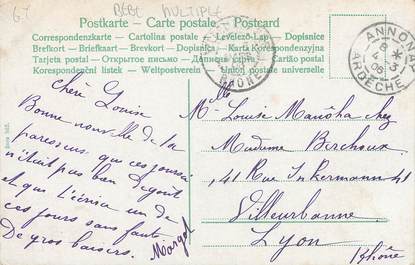 67 BÉBÉ MULTIPLE
Postkarte - Carte postale - Postcard
Correspondenzkarte - Cartolina postale - Levelező-Lap - Dopisnice
Brefkort - Briefkaart - Brevkort - Dopisnica - Korespondencyjna
Tarjeta postal - Открытое письмо - Дописна
Korespondenční lístek - Weltpostverein - Union postale universelle
RHÔNE
ANNONAY
ARDÈCHE
Chère Louise
Bonne nouvelle de la
paresseuse ces jours ci
n'était pas bon
et que l'écrira un de
ces jours sans faute
De gros baisers. Margot
Mlle Louise Manôha chez
Madame Berchoux
41 Rue Inkermann 41
Villeurbanne
Lyon
Rhône